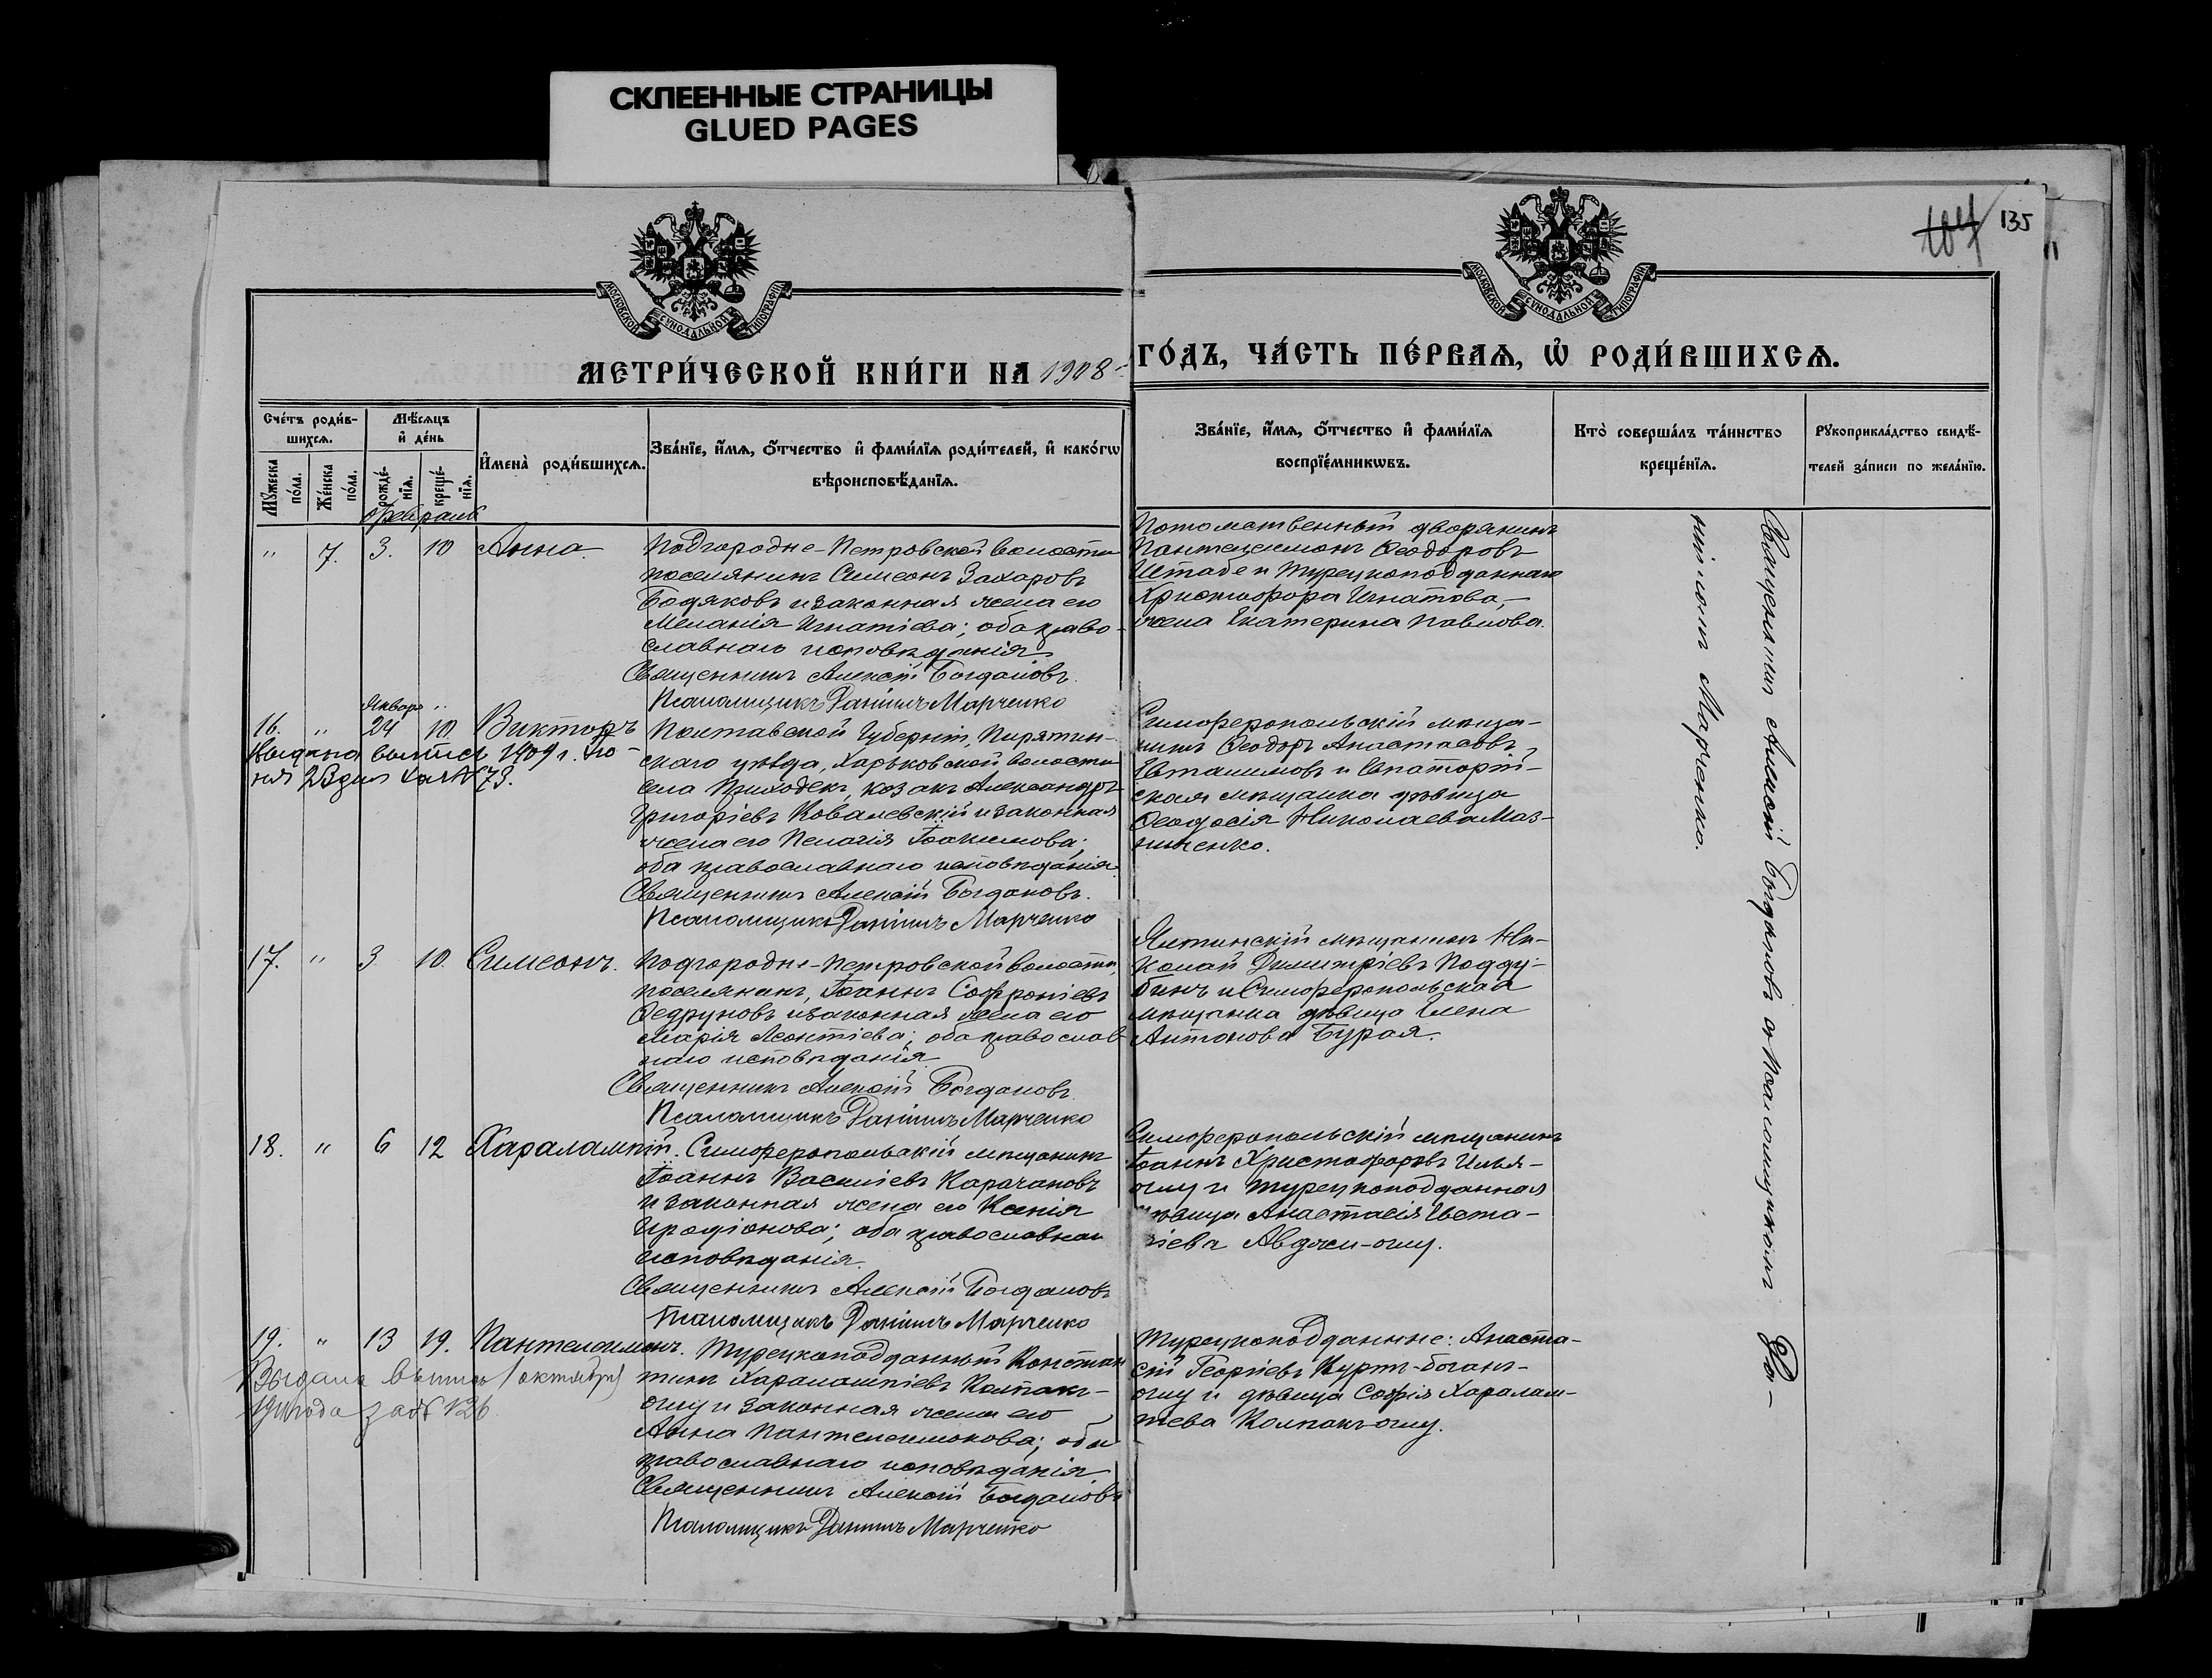 СКЛЕЕННЫЕ СТРАНИЦЫ
GLUED PAGES
МОСКОВСКОЙ СѴНОДАЛЬНОЙ ТИПОГРАФІИ
МОСКОВСКОЙ СѴНОДАЛЬНОЙ ТИПОГРАФІИ
104 135
МЕТРИ́ЧЕСКОЙ КНИ́ГИ НА 1908 ГО́ДЪ, ЧА́СТЬ ПЕ́РВАѦ, Ѡ҆ РОДИ́ВШИХСѦ.
Сче́тъ роди́в-
шихсѧ.
Мꙋ́жеска по́ла.
Же́нска по́ла.
Мѣ́сѧцъ
и҆ де́нь
рожде́-
нїѧ.
креще́-
нїѧ.
И҆мена̀ роди́вшихсѧ.
Зва́нїе, и҆́мѧ, ѻ҆́тчество и҆ фами́лїѧ роди́телей, и҆ како́гѡ
вѣроисповѣ́данїѧ.
Зва́нїе, и҆́мѧ, ѻ҆́тчество и҆ фами́лїѧ
воспрїе́мникѡвъ.
Кто̀ соверша́лъ та́инство
креще́нїѧ.
Рꙋкоприкла́дство свидѣ́-
телей за́писи по жела́нїю.
Февраль
" 7. 3. 10 Анна.
Подгородне-Петровской волости
поселянинъ Симеонъ Захаровъ
Бодяковъ и законная жена его
Меланія Игнатіева; оба право-
славнаго исповѣданія
Священникъ Алексій Богдановъ.
Псаломщикъ Даніилъ Марченко
Потомственный дворянинъ
Пантелеимонъ Ѳеодоровъ
Штабе и турецкоподданнаго
Христофора Игнатова,
жена Екатерина Павлова.
Январь "
16. " 24 10. Викторъ
Выдана выпись 1909 г. Ію-
ня 2 дня за № 73.
Полтавской Губерніи, Пирятин-
скаго уѣзда, Харьковской волости
села Приходекъ, козакъ Александръ
Григоріевъ Ковалевскій и законная
жена его Пелагія Іоакимова;
оба православнаго исповѣданія.
Священникъ Алексій Богдановъ.
Псаломщикъ Даніилъ Марченко
Симферопольскій мѣща-
нинъ Ѳеодоръ Анастасовъ
Евтахимовъ и Евпаторій-
ская мѣщанка дѣвица
Ѳеодосія Николаева Маз-
ниченко.
17. " 3 10. Симеонъ.
Подгородне-Петровской волости,
поселянинъ, Іоаннъ Софроніевъ
Ѳедруновъ и законная жена его
Марія Леонтіева; оба православ
наго исповѣданія.
Священникъ Алексій Богдановъ.
Псаломщикъ Даніилъ Марченко
Ялтинскій мѣщанинъ Ни-
колай Димитріевъ Подду-
бинъ и Симферопольская
мѣщанка дѣвица Елена
Антонова Бурая.
18. " 6 12 Харалампій.
Симферопольскій мѣщанинъ
Іоаннъ Василіевъ Карачановъ
и законная жена его Ксенія
Иродіонова; оба православнаго
исповѣданія.
Священникъ Алексій Богдановъ
Псаломщикъ Даніилъ Марченко
Симферопольскій мѣщанинъ
Іоаннъ Христофоровъ Илья-
оглу и турецкоподданная
дѣвица Анастасія Евста-
фіева Авджи-оглу.
19. " 13 19. Пантелеимонъ.
Выдана выпись 1 октября
года за № 126
Турецкоподданный Констан
тинъ Харалампіевъ Колпакъ-
оглу и законная жена его
Анна Пантелеимонова; оба
православнаго исповѣданія
Священникъ Алексій Богдановъ
Псаломщикъ Даніилъ Марченко
Турецкоподданные: Анаста-
сій Георгіевъ Куртъ-боганъ-
оглу и дѣвица Софія Харалам-
піева Колпакъ-оглу.
Священникъ Алексій Богдановъ съ Псаломщикомъ Да-
ніиломъ Марченко.